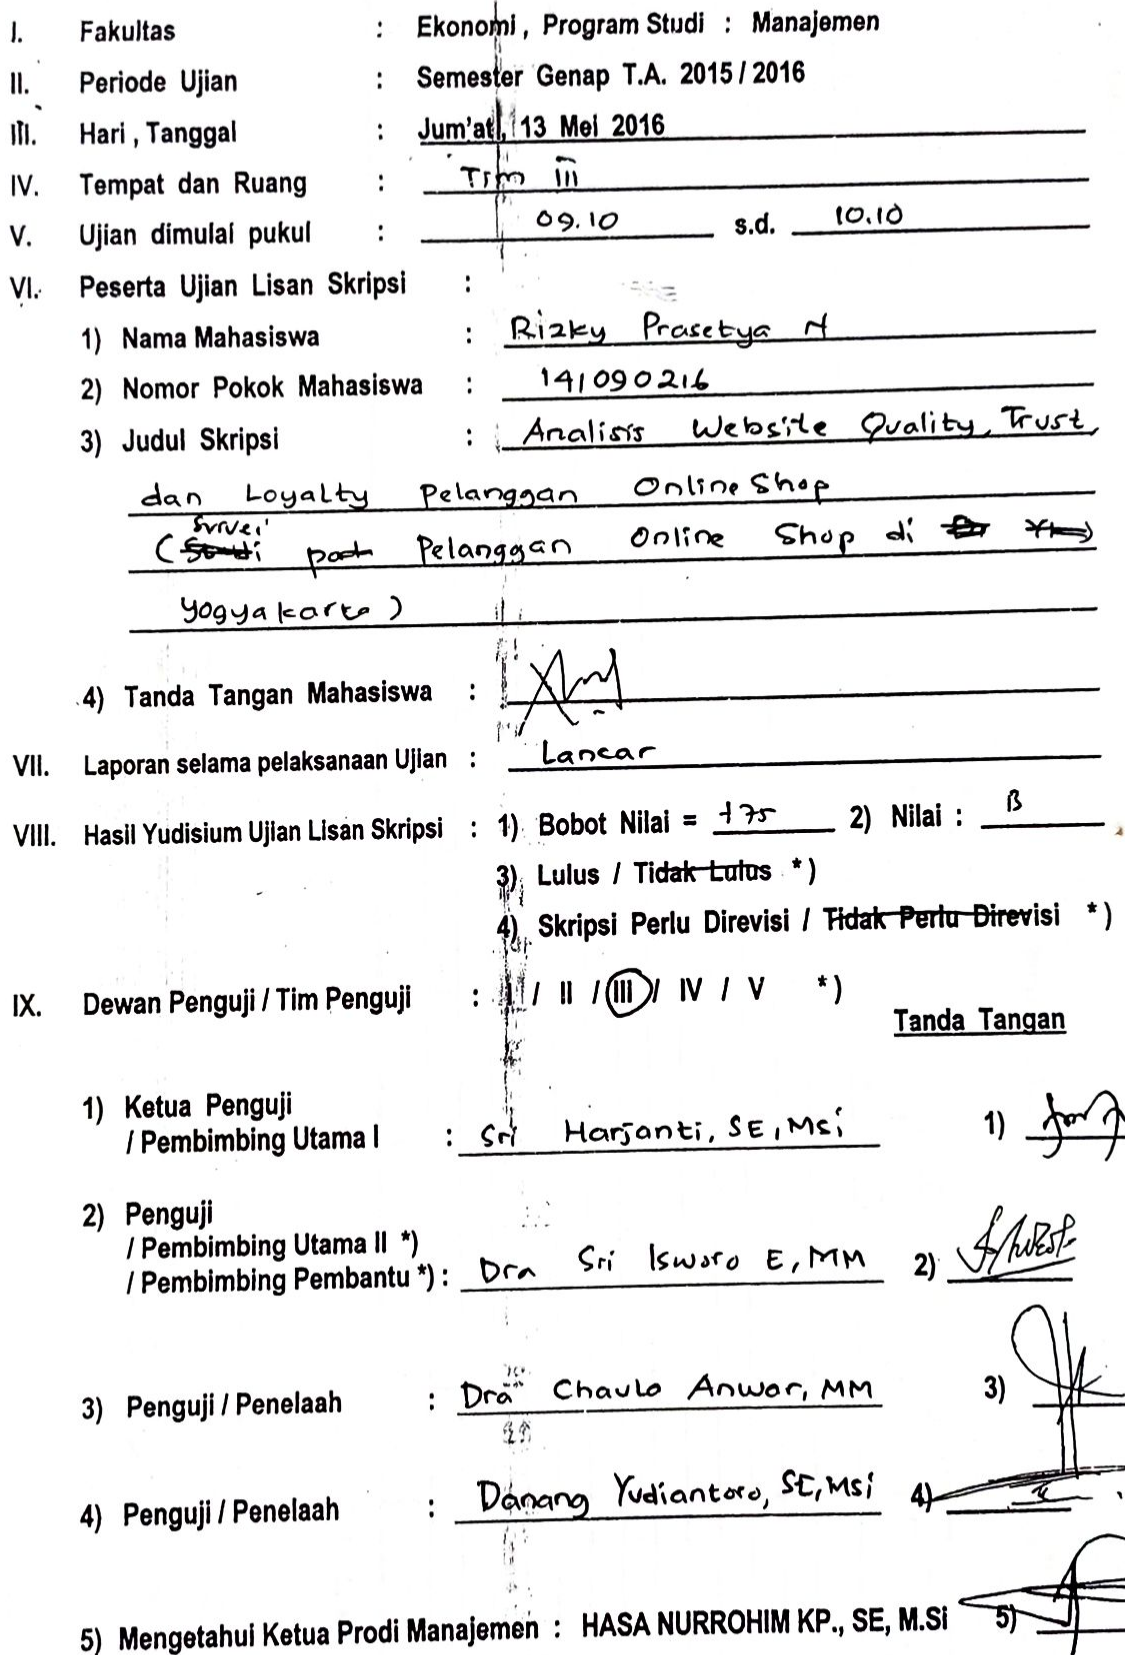 I. Fakultas : Ekonomi, Program Studi : Manajemen
II. Periode Ujian : Semester Genap T.A. 2015 / 2016
III. Hari, Tanggal : Jum'at, 13 Mei 2016
IV. Tempat dan Ruang : Tim III
V. Ujian dimulai pukul : 09.10 s.d. 10.10
VI. Peserta Ujian Lisan Skripsi :
1) Nama Mahasiswa : Rizky Prasetya N
2) Nomor Pokok Mahasiswa : 141090216
3) Judul Skripsi : Analisis Website Quality, Trust,
dan Loyalty Pelanggan Online Shop
Survei
(Studi pada Pelanggan Online Shop di
Yogyakarta)
4) Tanda Tangan Mahasiswa :
VII. Laporan selama pelaksanaan Ujian : Lancar
VIII. Hasil Yudisium Ujian Lisan Skripsi : 1) Bobot Nilai = +75 2) Nilai : B
3) Lulus / Tidak Lulus *)
4) Skripsi Perlu Direvisi / Tidak Perlu Direvisi *)
IX. Dewan Penguji / Tim Penguji : I / II / III / IV / V *)
Tanda Tangan
1) Ketua Penguji
/ Pembimbing Utama I : Sri Harjanti, SE, MSi 1)
2) Penguji
/ Pembimbing Utama II *)
/ Pembimbing Pembantu *) : Dra Sri Isworo E, MM 2)
3) Penguji / Penelaah : Dra Anwar, MM 3)
4) Penguji / Penelaah : Danang Yudiantoro, SE, MSi 4)
5) Mengetahui Ketua Prodi Manajemen : HASA NURROHIM KP., SE, M.Si 5)